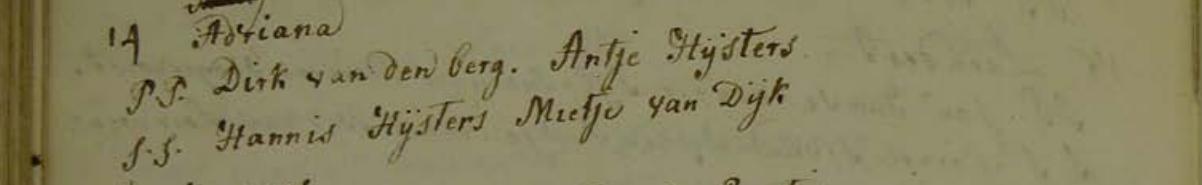 14 Adriana
P.P. Dirk van den berg. Antje Hijsters
S.S. Hannis Hijsters Mietje van Dijk